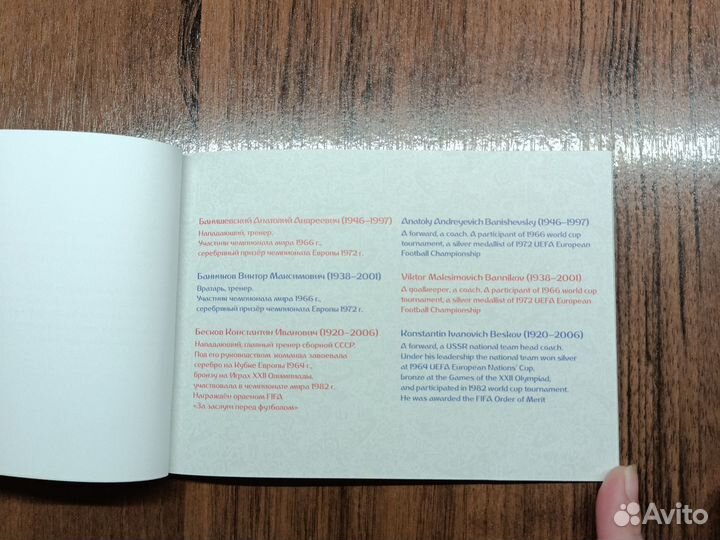 Банишевский Анатолий Андреевич (1946–1997)
Нападающий, тренер.
Участник чемпионата мира 1966 г.,
серебряный призёр чемпионата Европы 1972 г.
Банников Виктор Максимович (1938–2001)
Вратарь, тренер.
Участник чемпионата мира 1966 г.,
серебряный призёр чемпионата Европы 1972 г.
Бесков Константин Иванович (1920–2006)
Нападающий, главный тренер сборной СССР.
Под его руководством команда завоевала
серебро на Кубке Европы 1964 г.,
бронзу на Играх XXII Олимпиады,
участвовала в чемпионате мира 1982 г.
Награждён орденом FIFA
«За заслуги перед футболом»
Anatoly Andreyevich Banishevsky (1946–1997)
A forward, a coach. A participant of 1966 world cup
tournament, a silver medallist of 1972 UEFA European
Football Championship
Viktor Maksimovich Bannikov (1938–2001)
A goalkeeper, a coach. A participant of 1966 world cup
tournament, a silver medallist of 1972 UEFA European
Football Championship
Konstantin Ivanovich Beskov (1920–2006)
A forward, a USSR national team head coach.
Under his leadership the national team won silver
at 1964 UEFA European Nations' Cup,
bronze at the Games of the XXII Olympiad,
and participated in 1982 world cup tournament.
He was awarded the FIFA Order of Merit
Avito